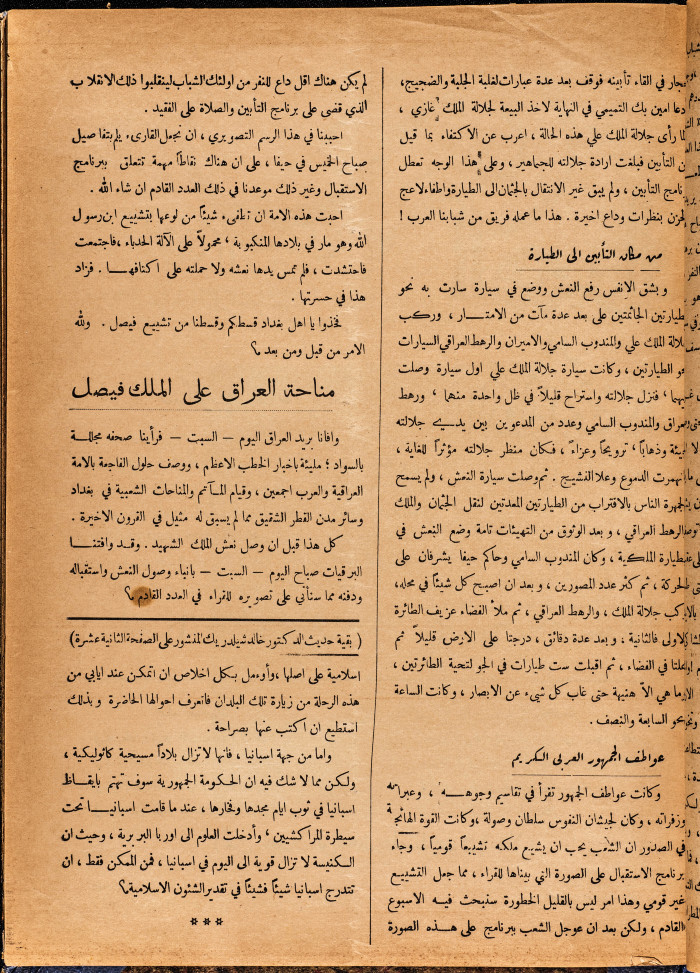 فجار في القاء تأبينه فوقف بعد عدة عبارات لغلبة الجلبة والضجيج،
دعا امين بك التميمي في النهاية لاخذ البيعة لجلالة الملك غازي ،
لما رأى جلالة الملك علي هذه الحالة ، اعرب عن الاكتفاء بما قيل
من التأبين فبلغت ارادة جلالته للجماهير ، وعلى هذا الوجه تعطل
نامج التأبين ، ولم يبق غير الانتقال بالجثمان الى الطيارة واطفاء لاعج
الحزن بنظرات وداع اخيرة . هذا ما عمله فريق من شبابنا العرب !
من مكان التأبين الى الطيارة
و بشق الانفس رفع النعش ووضع في سيارة سارت به نحو
طيارتين الجاثمتين على بعد عدة مآت من الامتار ، وركب
جلالة الملك علي والمندوب السامي والاميران والرهط العراقي السيارات
نحو الطيارتين ، وكانت سيارة جلالة الملك علي اول سيارة وصلت
فنزل جلالته واستراح قليلاً في ظل واحدة منهما ، ورهط
العراق والمندوب السامي وعدد من المدعوين بين يدي جلالته
جيئة وذهاباً ، ترويحاً وعزاءً ، فكان منظر جلالته مؤثراً للغاية ،
انهمرت الدموع وعلا النشيج . ثم وصلت سيارة النعش ، ولم يسمح
لجمهرة الناس بالاقتراب من الطيارتين المعدتين لنقل الجثمان والملك
والرهط العراقي ، و بعد الوثوق من التهيئات تامة وضع النعش في
طيارة الملكية ، وكان المندوب السامي وحاكم حيفا يشرفان على
الحركة ، ثم كثر عدد المصورين ، و بعد ان اصبح كل شيئاً في محله،
ركب جلالة الملك ، والرهط العراقي ، ثم ملأ الفضاء عزيف الطائرة
الاولى فالثانية ، و بعد عدة دقائق ، درجتا على الارض قليلاً ثم
علتا في الفضاء ، ثم اقبلت ست طيارات في الجو لتحية الطائرتين ،
ما هي الاّ هنيهة حتى غاب كل شيء عن الابصار ، وكانت الساعة
نحو السابعة والنصف .
عواطف الجمهور العربي الكريم
وكانت عواطف الجمهور تقرأ في تقاسيم وجوهه ، وعبراته
وزفراته ، وكان لجيشان النفوس سلطان وصولة ، وكانت القوة الهائجة
في الصدور ان الشعب يحب ان يشيع ملكه تشييعاً قومياً ، وجاء
برنامج الاستقبال على الصورة التي بيناها للقراء ، مما جعل التشييع
غير قومي وهذا امر ليس بالقليل الخطورة سنبحث فيه الاسبوع
القادم ، ولكن بعد ان عوجل الشعب ببرنامج على هذه الصورة
لم يكن هناك اقل داع للنفر من اولئك الشباب لينقلبوا ذلك الانقلاب
الذي قضى على برنامج التأبين والصلاة على الفقيد .
احببنا في هذا الرسم التصويري ، ان نجعل القارىء يلم بتفاصيل
صباح الخميس في حيفا ، على ان هناك نقاطاً مهمة تتعلق ببرنامج
الاستقبال وغير ذلك موعدنا في ذلك العدد القادم ان شاء الله .
احبت هذه الامة ان تطفىء شيئاً من لوعها بتشييع ابن رسول
الله وهو مار في بلادها المنكوبة ، محمولاً على الآلة الحدباء ، فاجتمعت
فاحتشدت ، فلم تمس يدها نعشه ولا حملته على اكتافها . فزاد
هذا في حسرتها .
فخذوا يا اهل بغداد قسطكم وقسطنا من تشييع فيصل . ولله
الامر من قبل ومن بعد ؟
مناحة العراق على الملك فيصل
وافانا بريد العراق اليوم – السبت – فرأينا صحفه مجللة
بالسواد ؛ مليئة باخبار الخطب الاعظم ، ووصف حلول الفاجعة بالامة
العراقية والعرب اجمعين ، وقيام المآتم والمناحات الشعبية في بغداد
وسائر مدن القطر الشقيق مما لم يسبق له مثيل في القرون الاخيرة .
كل هذا قبل ان وصل نعش الملك الشهيد . وقد وافتنا
البرقيات صباح اليوم – السبت – بانباء وصول النعش واستقباله
ودفنه مما سنأتي على تصويره للقراء في العدد القادم ؟
( بقية حديث الدكتور خالد شيلدريك المنشور على الصفحة الثانية عشرة )
اسلامية على اصلها ، وأؤمل بكل اخلاص ان اتمكن عند ايابي من
هذه الرحلة من زيارة تلك البلدان فاتعرف احوالها الحاضرة و بذلك
استطيع ان اكتب عنها بصراحة .
واما من جهة اسبانيا ، فانها لا تزال بلاداً مسيحية كاثوليكية ،
ولكن مما لا شك فيه ان الحكومة الجمهورية سوف تهتم بايقاظ
اسبانيا في ثوب ايام مجدها وفخارها ، عند ما قامت اسبانيا تحت
سيطرة المراكشيين ، وأدخلت العلوم الى اوربا البربرية ، وحيث ان
الكنيسة لا تزال قوية الى اليوم في اسبانيا ، فمن الممكن فقط ، ان
تتدرج اسبانيا شيئاً فشيئاً في تقدير الشئون الاسلامية ؟
***